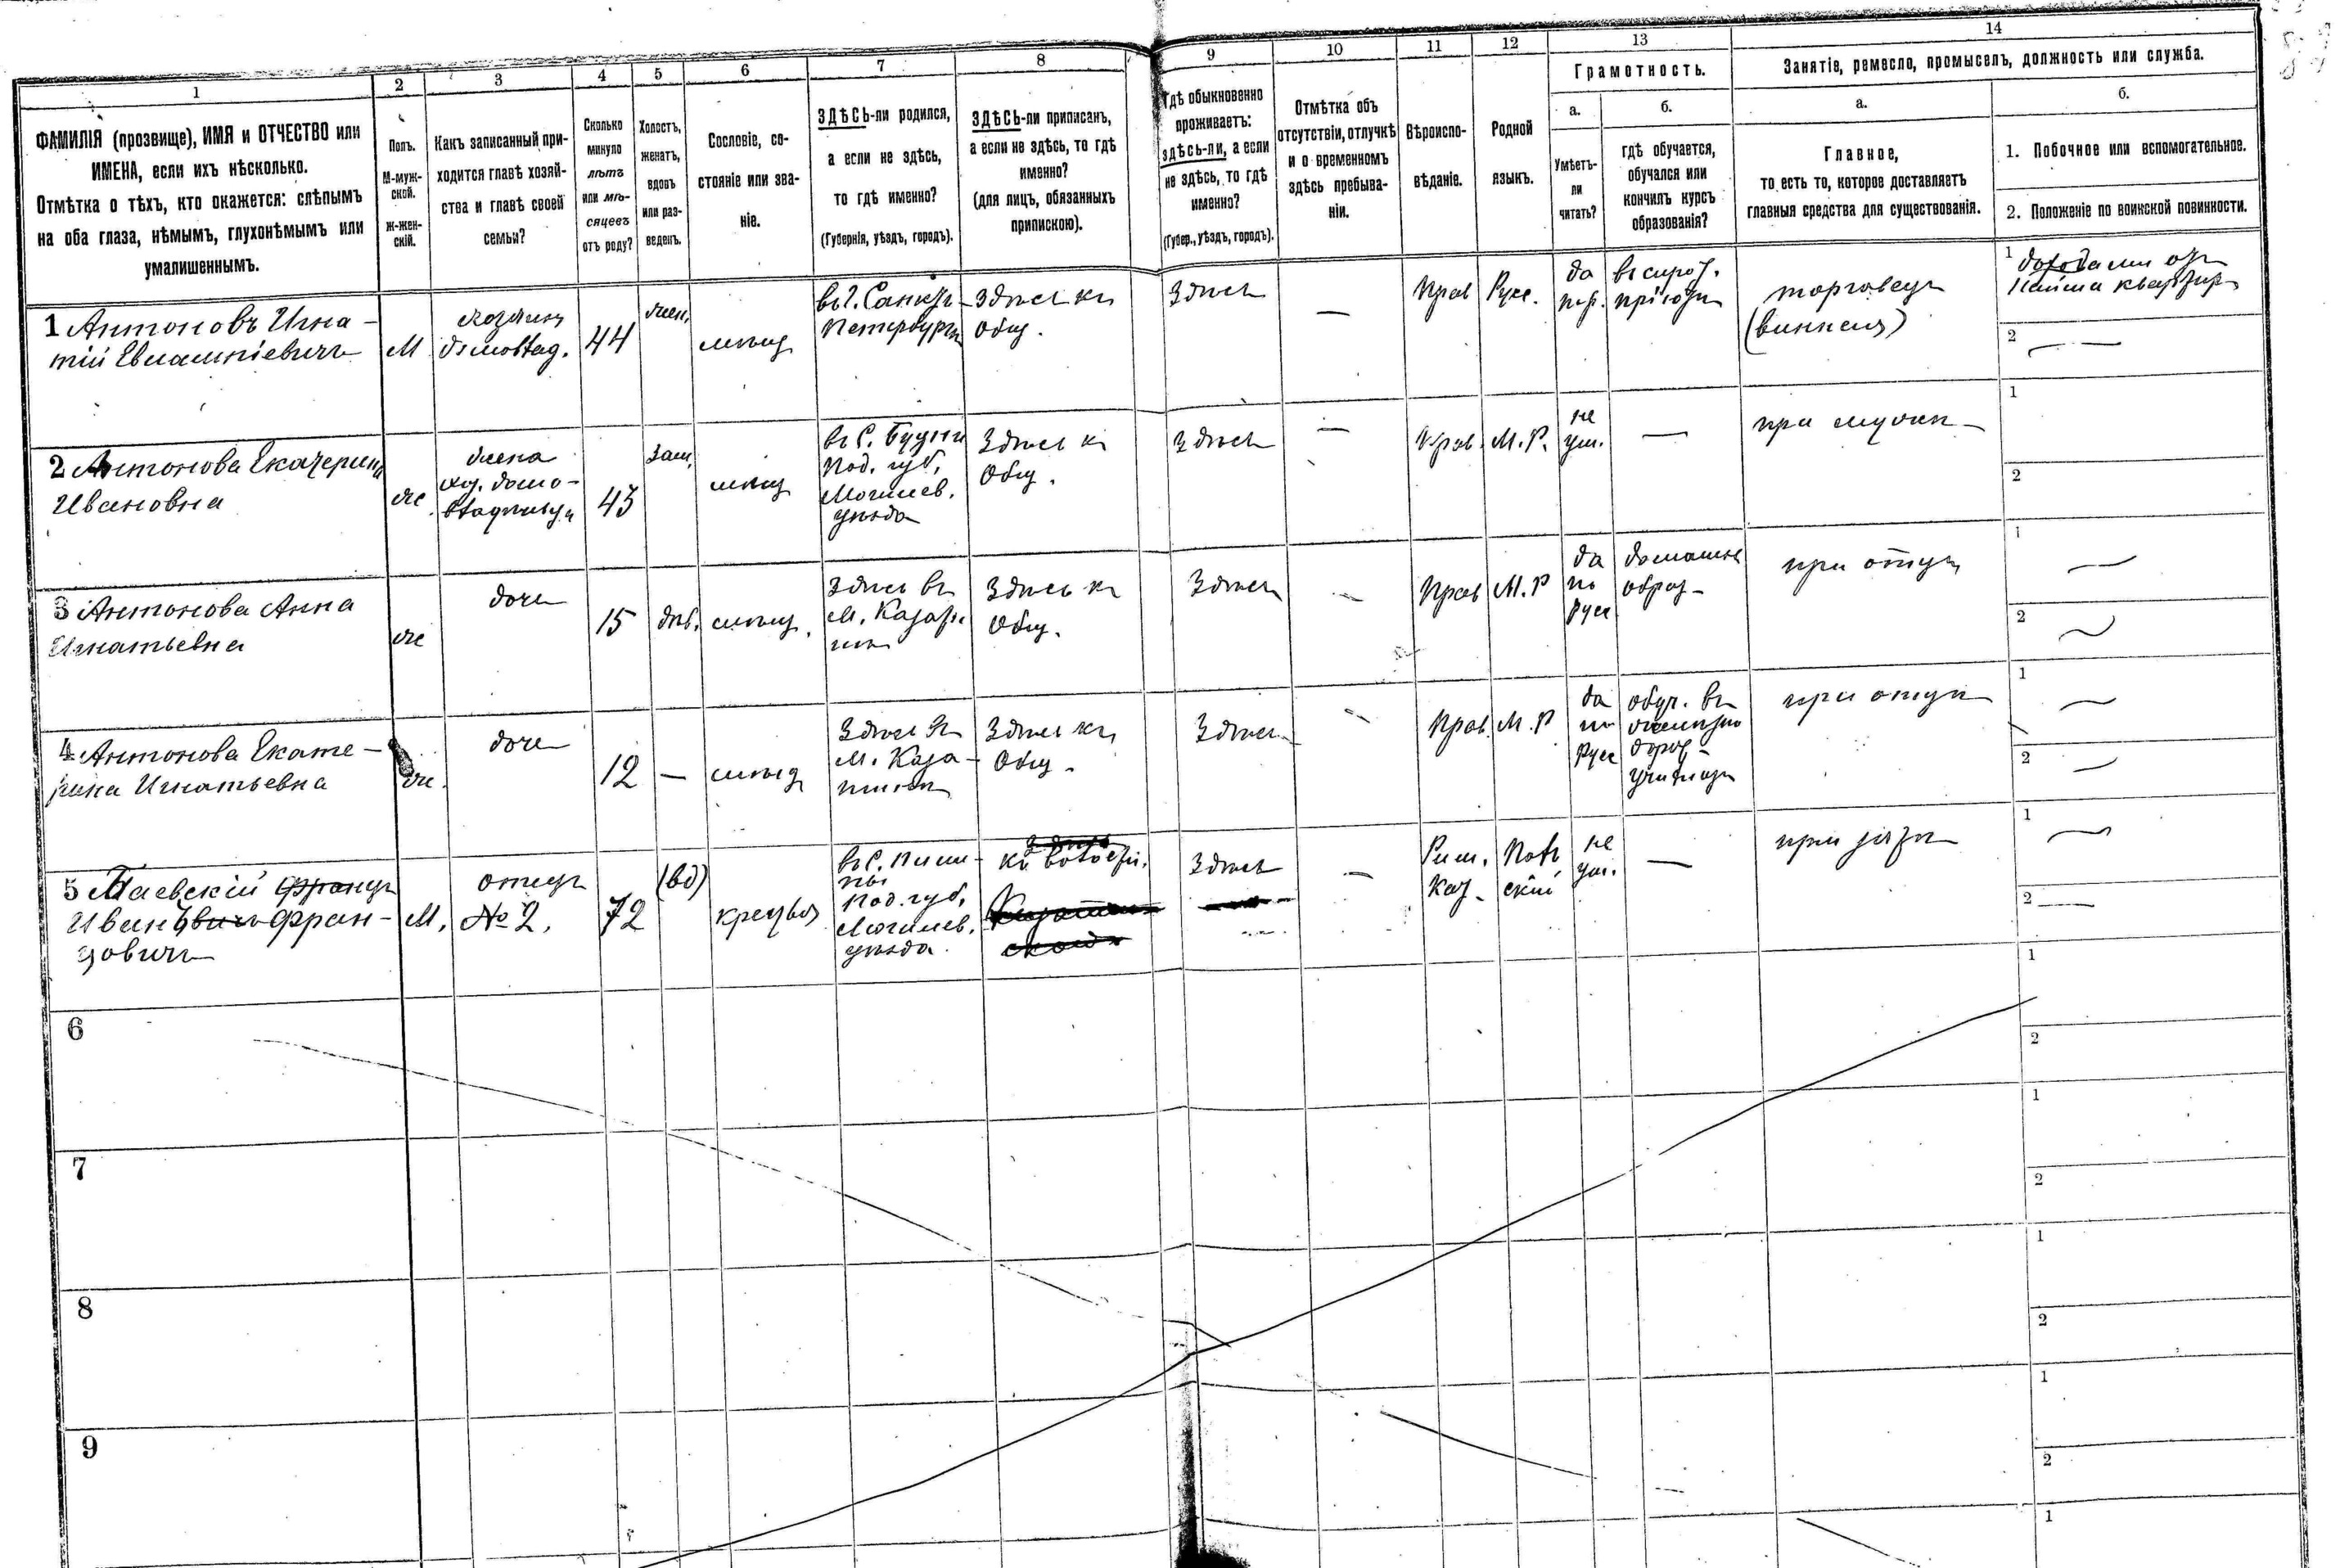 1
2
3
4
5
6
7
8
9
10
11
12
13
14
Грамотность.
Занятіе, ремесло, промыселъ, должность или служба.
а.
б.
а.
б.
ФАМИЛІЯ (прозвище), ИМЯ и ОТЧЕСТВО или
ИМЕНА, если ихъ нѣсколько.
Отмѣтка о тѣхъ, кто окажется: слѣпымъ
на оба глаза, нѣмымъ, глухонѣмымъ или
умалишеннымъ.
Полъ.
М-муж-
ской.
Ж-жен-
скій.
Какъ записанный при-
ходится главѣ хозяй-
ства и главѣ своей
семьи?
Сколько
минуло
лѣтъ
или мѣ-
сяцевъ
отъ роду?
Холостъ,
женатъ,
вдовъ
или раз-
веденъ.
Сословіе, со-
стояніе или зва-
ніе.
ЗДѢСЬ-ли родился,
а если не здѣсь,
то гдѣ именно?
(Губернія, уѣздъ, городъ).
ЗДѢСЬ-ли приписанъ,
а если не здѣсь, то гдѣ
именно?
(для лицъ, обязанныхъ
припискою).
Гдѣ обыкновенно
проживаетъ:
здѣсь-ли, а если
не здѣсь, то гдѣ
именно?
(Губер., уѣздъ, городъ).
Отмѣтка объ
отсутствіи, отлучкѣ
и о временномъ
здѣсь пребыва-
ніи.
Вѣроиспо-
вѣданіе.
Родной
языкъ.
Умѣетъ-
ли
читать?
гдѣ обучается,
обучался или
кончилъ курсъ
образованія?
Главное,
то есть то, которое доставляетъ
главныя средства для существованія.
1. Побочное или вспомогательное.
2. Положеніе по воинской повинности.
1 Антоновъ Игна-
тій Евлампіевичъ
М
хозяинъ
домовлад.
44
жен.
мѣщ
въ г. Санктъ-
Петербургѣ
Здѣсь къ
Общ.
Здѣсь
—
Прав
Русс.
да
въ сирот.
пріютѣ
торговецъ
1 доходами отъ
найма квартиръ
2 —
2 Антонова Екатерина
Ивановна
ж
жена
43
Зам.
мѣщ
въ С.
Под. губ.
Могилев.
уѣзда
Здѣсь къ
Общ.
Здѣсь
—
Прав.
М. Р.
не
ум.
—
при мужѣ
1
2
3 Антонова Анна
Игнатьевна
ж
дочь
15
дѣв.
мѣщ.
Здѣсь въ
Здѣсь къ
Общ.
Здѣсь
—
Прав
М. Р
да
по
Русс
домашн
образ-
при отцѣ
1 —
2 —
4 Антонова Екате-
рина Игнатьевна
ж.
дочь
12
—
мѣщ
Здѣсь въ
М. Каза-
Здѣсь къ
Общ.
Здѣсь
—
Прав.
М. Р
да
по
Русс
обуч. въ
при отцѣ
1 —
2 —
5 Маевскій Францъ
Иванъ Фран-
цовичъ
М.
отецъ
№ 2.
72
(вд)
въ С.
Под. губ.
Могилев.
уѣзда
Здѣсь
—
Рим.
Кат.
Поль
скій
не
ум.
—
при зятѣ
1 —
2 —
6
1
2
7
1
2
8
1
2
9
1
2
1